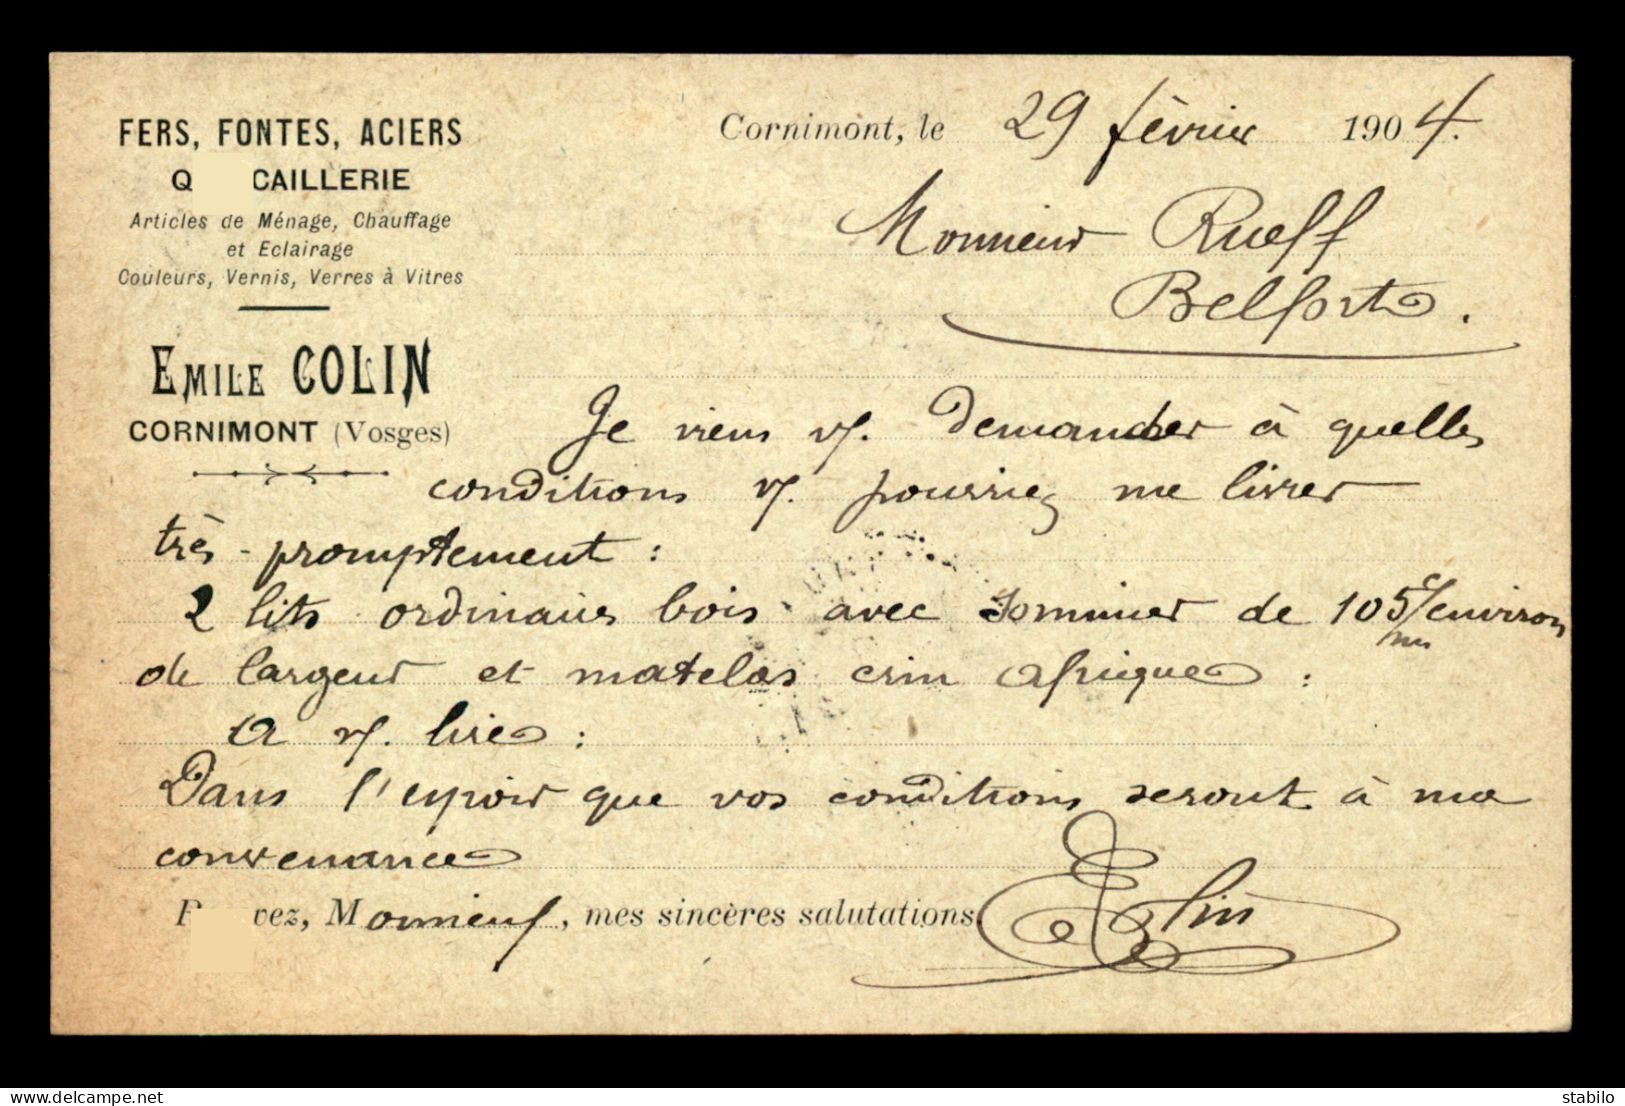 FERS, FONTES, ACIERS
Q CAILLERIE
Articles de Ménage, Chauffage
et Eclairage
Couleurs, Vernis, Verres à Vitres
EMILE COLIN
CORNIMONT (Vosges)
Cornimont, le 29 février 1904.
Monsieur Rueff
Belfort.
Je viens v/. demander à quelles
conditions v/. pourriez me livrer
très-promptement :
2 lits ordinaires bois avec sommier de 105 c/m environ
de largeur et matelas crin afrique :
a v/. lire :
Dans l'espoir que vos conditions seront à ma
convenance
P vez, Monsieur, mes sincères salutations
EColin
delcampe.net
stabilo